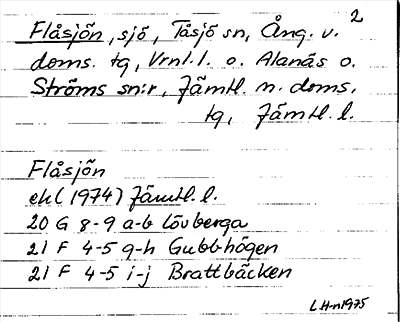 2
Flåsjön, sjö, Tåsjö sn, Ång. v.
doms. tg, Vrnl. l. o. Alanäs o.
Ströms sn:r, Jämtl. n. doms.
tg, Jämtl. l.
Flåsjön
ek (1974) Jämtl. l.
20 G 8-9 a-b Lövberga
21 F 4-5 g-h Gubbhögen
21 F 4-5 i-j Brattbäcken
LH-n 1975